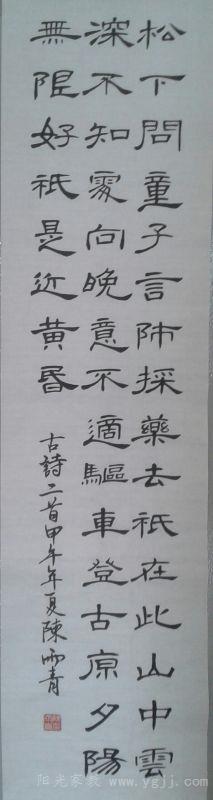 松下問童子言師採藥去祇在此山中雲
深不知處向晚意不適驅車登古原夕陽
無限好祇是近黃昏
古詩二首甲午年夏陳青
阳光家教 www.ygjj.com